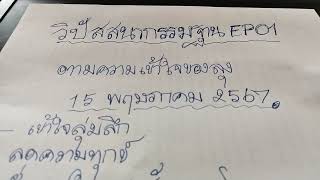 วิปัสสนากรรมฐาน EP01
ตามความเข้าใจของลุง
15 พฤษภาคม 2567.
- เข้าใจลุ่มลึก
ลดความทุกข์